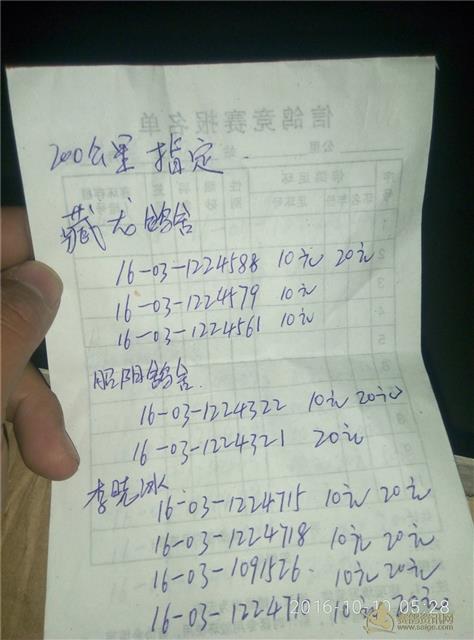 信鸽竞赛报名单
200公里 指定
藏龙鸽舍
16-03-1224588 10元 20元
16-03-1224579 10元
16-03-1224561 10元
昭阳鸽舍.
16-03-1224322 10元 20元
16-03-1224321 20元
李晓冰
16-03-1224715 10元 20元
16-03-1224718 10元 20元
16-03-1091526. 10元 20元
16-03-12247 10元 20元
2016-10-10 05:28
赛鸽资讯网
www.saige.com